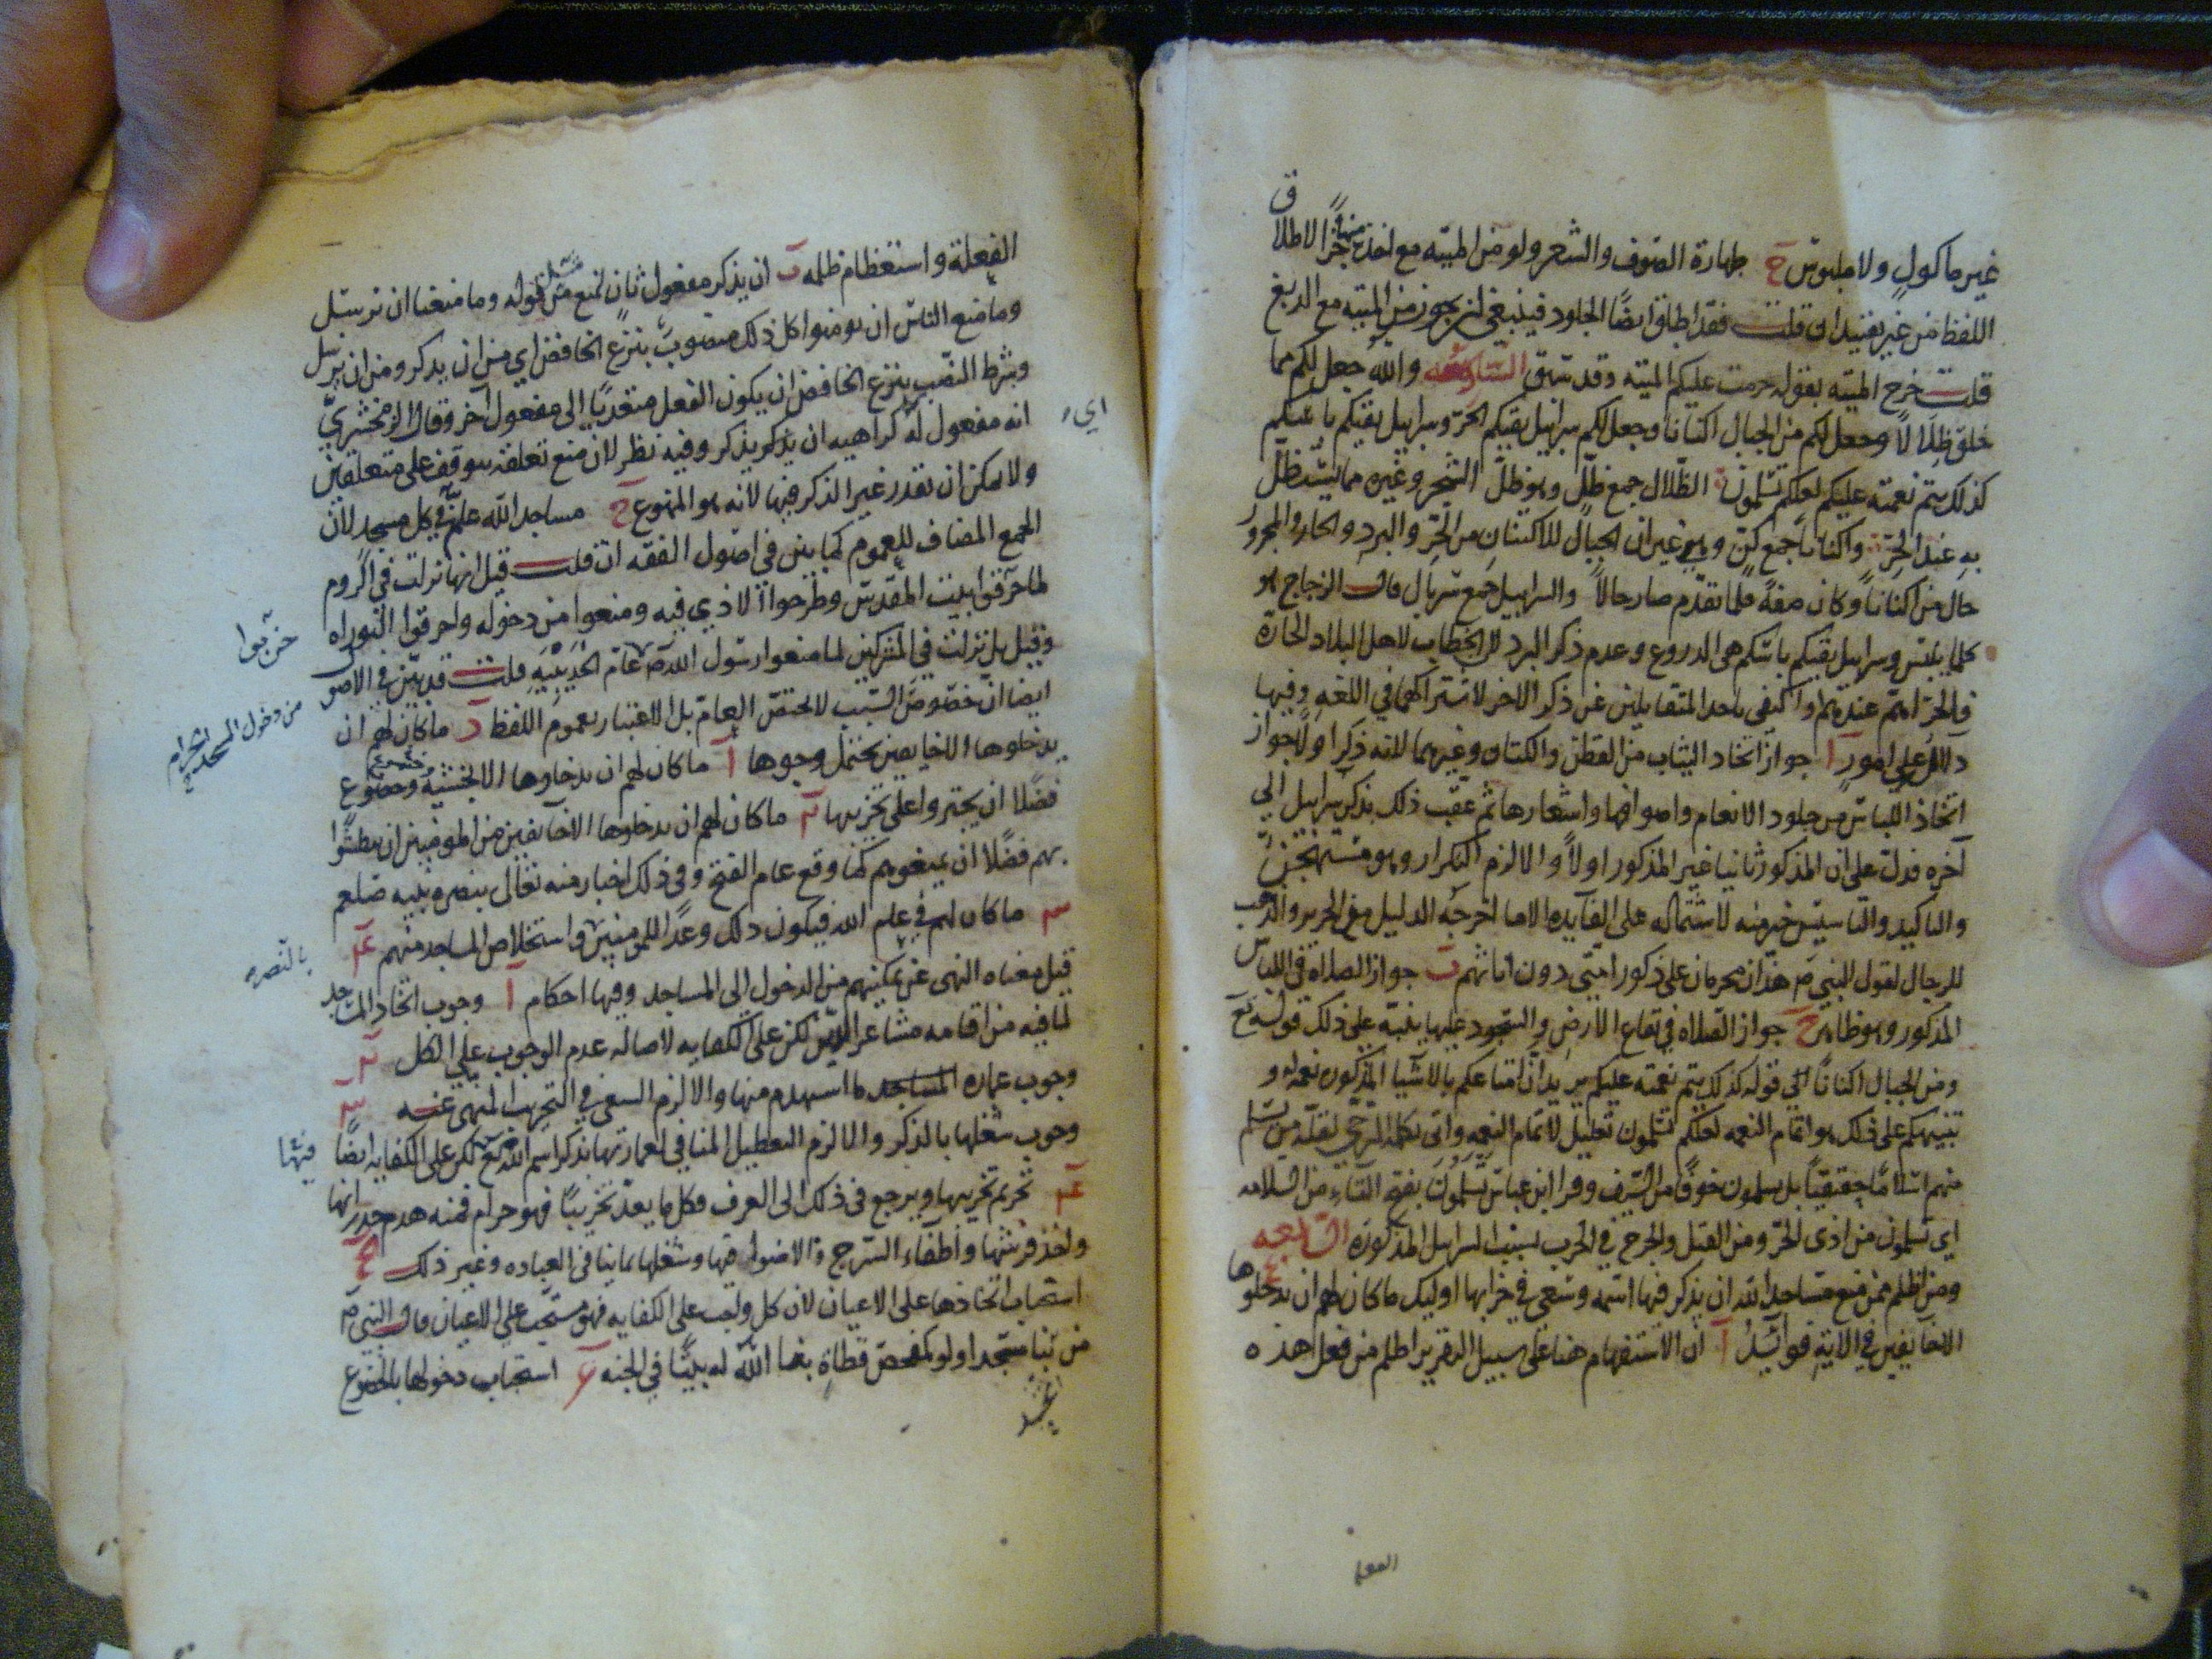 غير ماكول ولا ملبوس ج طهارة الصوف والشعر ولو من الميته مع اخذه منها جزا لاطلا ق
اللفظ من غير تقييد ان قلت فقد اطلق ايضًا الجلود فينبغي ان يجوز من الميته مع الدبغ
قلت خرج الميته بقوله حرمت عليكم الميته وقد سبق السادسه والله جعل لكم مما
خلق ظلالًا وجعل لكم من الجبال اكنانا وجعل لكم سرابيل تقيكم الحر وسرابيل تقيكم باسكم
كذلك يتم نعمته عليكم لعلكم تسلمون الظلال جمع ظل وهو ظل الشجر وغيره مما يستظل
به عند الحر واكنانا جمع كن وهو غيران الجبال للاكتنان من الحر والبرد والجار والمجرور
حال من اكنانا وكان صفة فلما تقدم صار حالاً والسرابيل جمع سربال قال الزجاج هو
كلما يلبس وسرابيل تقيكم باسكم هي الدروع وعدم ذكر البرد لان الخطاب لاهل البلاد الحارة
والحر اهم عندهم او اكتفى باحد المتقابلين عن ذكر الاخر لاشتراكهما في اللغه وفيها
دلالة على امور آ جواز اتخاد الثياب من القطن والكتان وغيرهما لانه ذكر اولًا جواز
اتخاذ اللباس من جلود الانعام واصوافها واشعارها ثم عقب ذلك بذكر سرابيل الى
آخره فدل على ان المذكور ثانيا غير المذكور اولاً والا لزم التكرار وهو مستهجن
والتاكيد والتاسيس خير منه لاشتماله على الفايده الا ما اخرجه الدليل مع الحرير والذهب
للرجال لقول النبي ص هذان محرمان على ذكور امتي دون اناثهم ب جواز الصلاه في اللباس
المذكور وهو ظاهر ج جواز الصلاه في بقاع الارض والسجود عليها ينبه على ذلك قوله تع
ومن الجبال اكنانًا الى قوله كذلك يتم نعمته عليكم يريد ان امتاعكم بالاشيا المذكوره نعمة و
تنبيهكم على ذلك هو اتمام النعمه لعلكم تسلمون تعليل لاتمام النعمه واتى بكلمة الترجي لقلة من يسلم
منهم اسلامًا حقيقيًا بل يسلمون خوفًا من السيف وقرا ابن عباس تسلمون بفتح التاء من السلامه
اي تسلمون من اذى الحر ومن القتل والجرح في الحرب بسبب السرابيل المذكورة السابعه
ومن اظلم ممن منع مساجد الله ان يذكر فيها اسمه وسعى في خرابها اوليك ما كان لهم ان يدخلوها
الا خايفين في الاية فوائد آ ان الاستفهام هنا على سبيل التقرير اظلم من فعل هذه
الفعلة
الفعلة واستعظام ظلمه ب ان يذكر مفعول ثان لمنع مثل قوله وما منعنا ان نرسل
وما منع الناس ان يومنوا كل ذلك منصوب بنزع الخافض اي من ان يذكر ومن ان نرسل
وشرط النصب بنزع الخافض ان يكون الفعل متعديًا الى مفعول آخر وقال الزمخشري
انه مفعول له اي كراهيه ان يذكر وفيه نظر لان منع تعلقه يتوقف على متعلقين
ولا يمكن ان تقدر غير الذكر فيها لانه هو الممنوع ج مساجد الله عام في كل مسجد لان
الجمع المضاف للعموم كما بين في اصول الفقه ان قلت قيل انها نزلت في الروم
لما خربوا بيت المقدس وطرحوا الاذي فيه ومنعوا من دخوله واحرقوا التوراه
خربوا
وقيل بل نزلت في المشركين لما منعوا رسول الله ص عام الحديبيه قلت قد بين في الاصول
من دخول المسجد الحرام
ايضا ان خصوص السبب لا يخصص العام بل الاعتبار بعموم اللفظ د ما كان لهم ان
يدخلوها الا خايفين يحتمل وجوها آ ما كان لهم ان يدخلوها الا بخشية وخضوع
فضلًا ان يجتروا على تخريبها ٢ ما كان لهم ان يدخلوها الا خايفين من المومنين ان يبطشوا
بهم فضلًا ان يمنعوهم كما وقع عام الفتح وفي ذلك اخبار منه تعالى بنصره نبيه صلعم
٣ ما كان لهم في علم الله فيكون ذلك وعدًا للمومنين واستخلاص المساجد منهم ٤
بالنصره
قيل معناه النهي عن تمكينهم من الدخول الى المساجد وفيها احكام آ وجوب اتخاد المساجد
لما فيه من اقامه مشاعر الدين لكن على الكفايه لاصاله عدم الوجوب على الكل ٢
وجوب عماره المساجد ما استهدم منها والا لزم السعي في التخريب المنهى عنه ٣
وجوب شغلها بالذكر والا لزم التعطيل المنافي لعمارتها بذكر اسم الله فيها لكن على الكفايه ايضًا
٤ تحريم تخريبها ويرجع في ذلك الى العرف فكل ما يعد تخريبًا فهو حرام فمنه هدم جدرانها
واخذ فرشها واطفاء السرج والاضواء فيها وشغلها بما ينافي العباده وغير ذلك
استحباب اتخاذها على الاعيان لان كل واجب على الكفايه فهو مستحب على الاعيان قال النبي ص
من بنا مسجدا ولو كمفحص قطاة بنا الله له بيتًا في الجنه استحباب دخولها بالخضوع